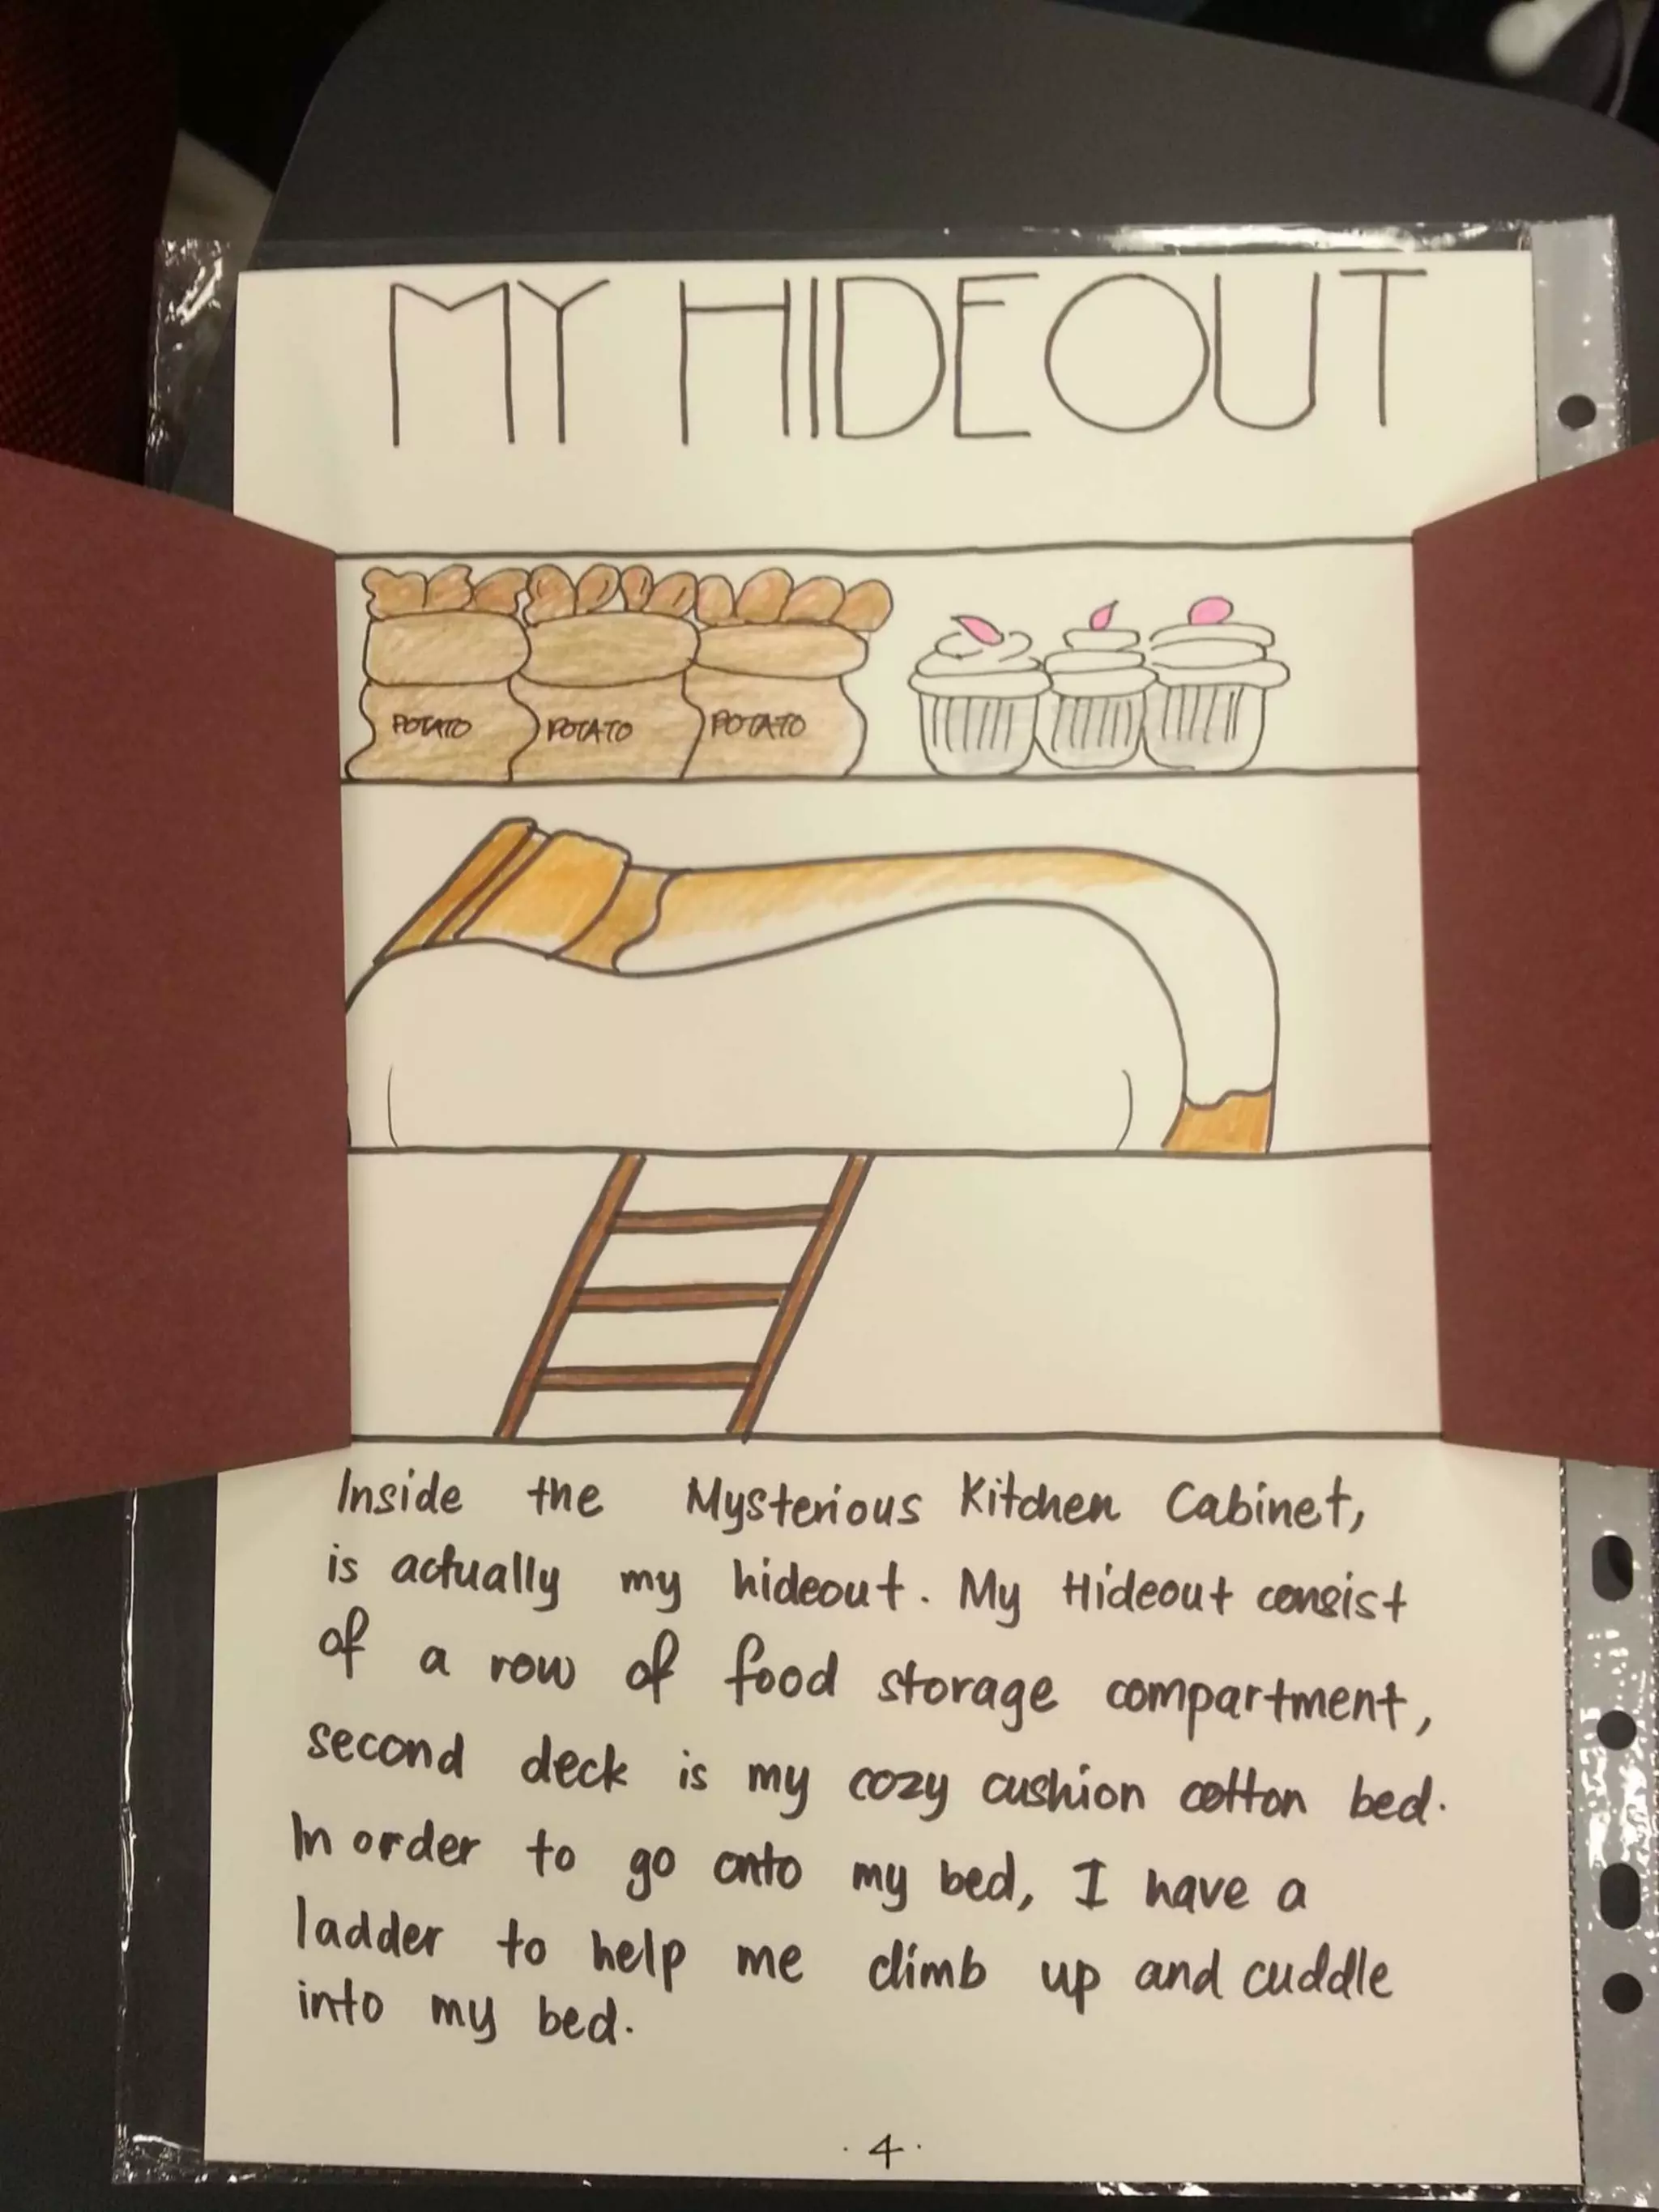 MY HIDEOUT
POTATO POTATO POTATO
Inside the Mysterious Kitchen Cabinet,
is actually my hideout. My Hideout consist
of a row of food storage compartment,
second deck is my cozy cushion cotton bed.
In order to go onto my bed, I have a
ladder to help me climb up and cuddle
into my bed.
. 4 .